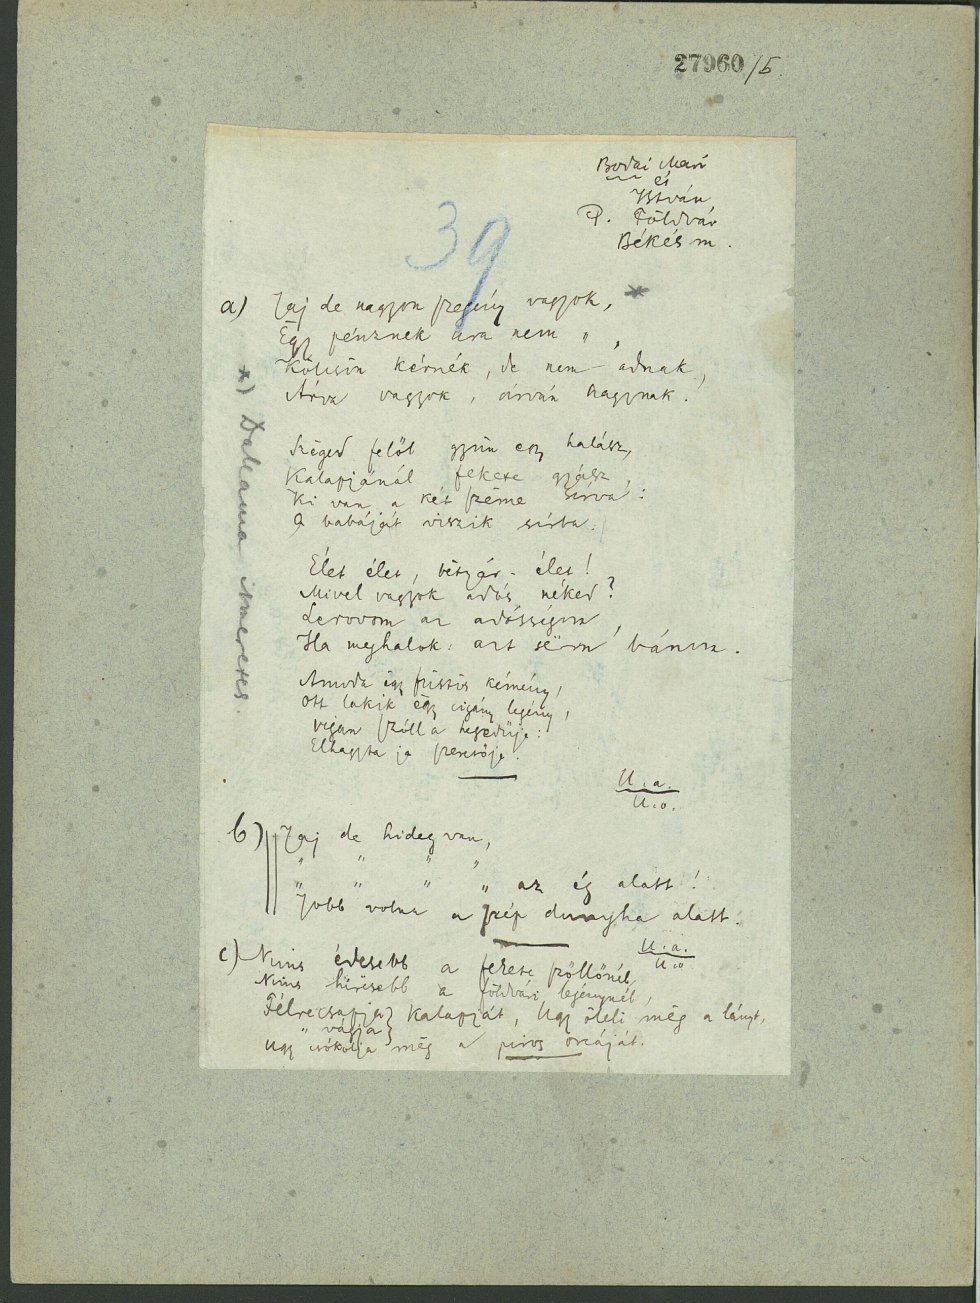 27960/5
Bodai Mari
és
István
P. Földvár
Békés m.
39
a) Jaj de nagyon szegény vagyok, *
Egy pénznek ura nem " ,
Kölcsön kérnék, de nem adnak,
Árva vagyok, árván hagynak.
*) Dallama ismeretes.
Szeged felől gyün egy halász,
Kalapjánál fekete gyász,
Ki van a két szeme sírva:
A babáját viszik sírba.
Élet élet, betyár-élet!
Mivel vagyok adós néked?
Lerovom az adósságom,
Ha meghalok: azt sëm bánom.
Amoda ëgy füstös kémény,
Ott lakik ëgy cigány legény,
Vígan szóll a hegedűje:
Elhagyta ja szeretője.
U. a.
U. o.
b) Jaj de hideg van,
" " " "
" " " " az ég alatt!
Jobb volna a szép dunyha alatt.
U. a.
U. o.
c) Nincs édesebb a fekete szöllőnél,
Nincs híresebb a földvári legénynél,
Félrecsapja} kalapját, Úgy öleli még a lányt,
" vágja}
Úgy csókolja még a piros orcáját.